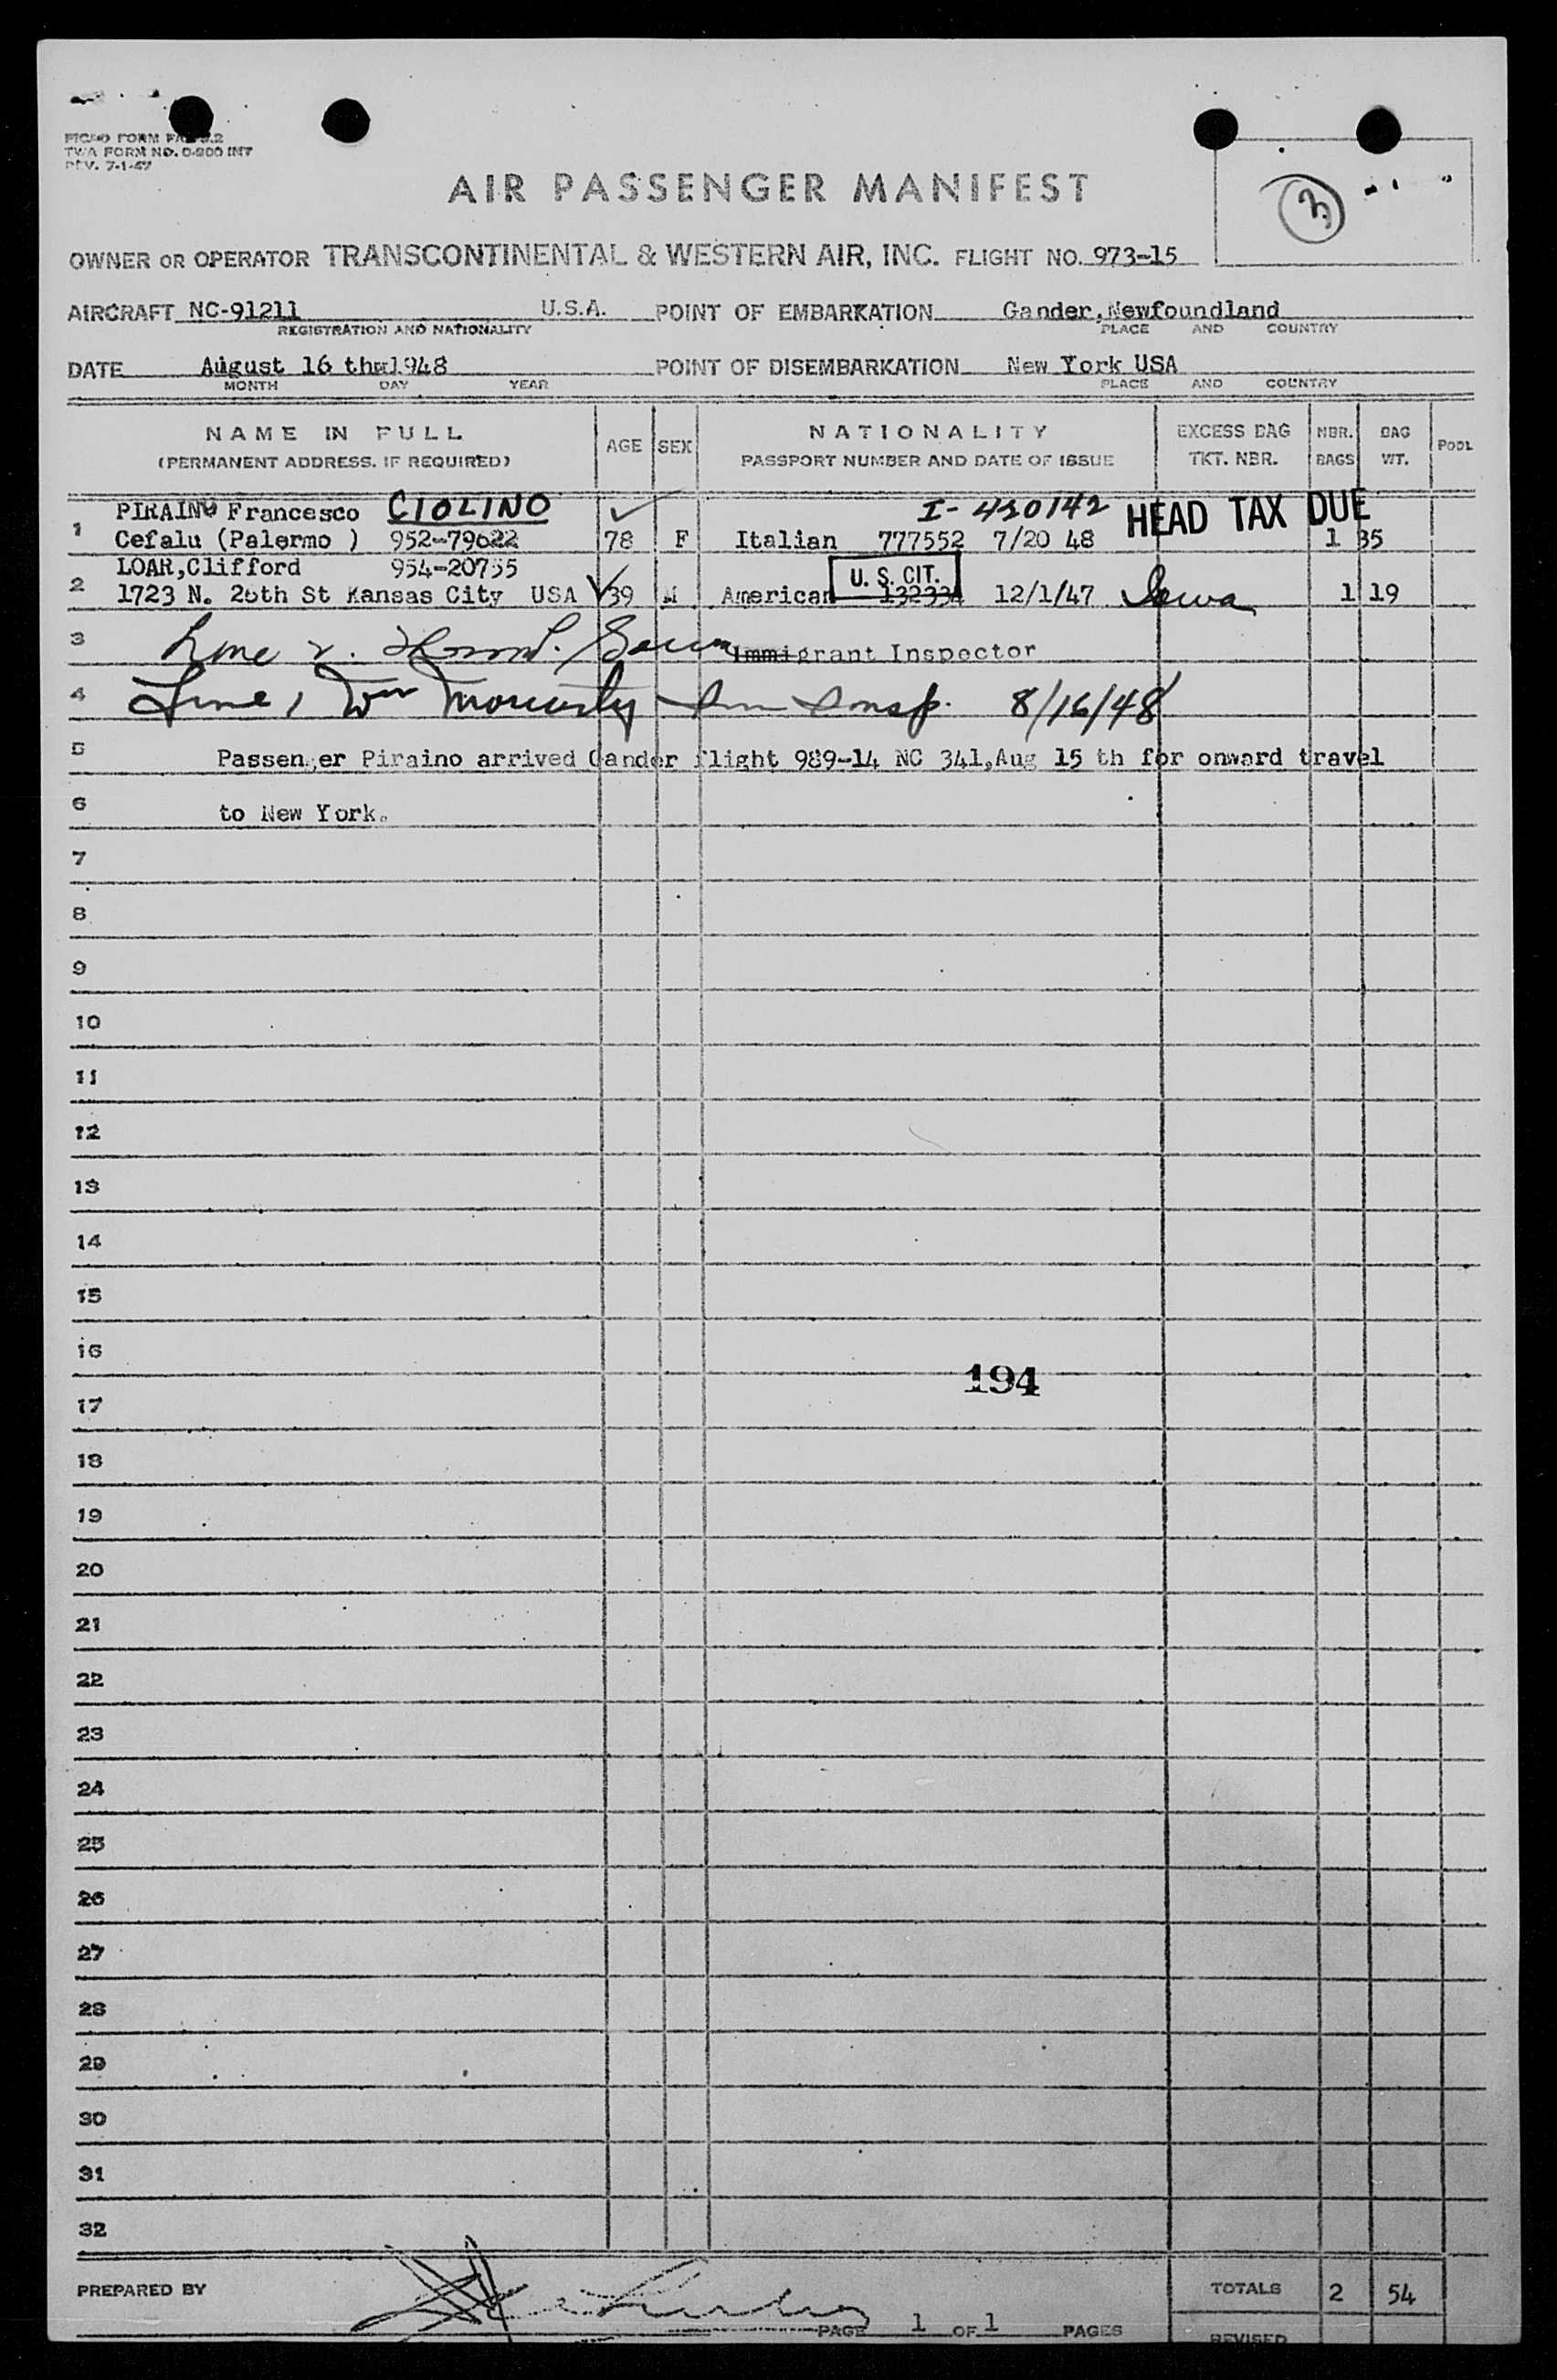 TWA FORM NO. 0-900 INT
REV. 7-1-47
3
AIR PASSENGER MANIFEST
OWNER OR OPERATOR TRANSCONTINENTAL & WESTERN AIR, INC. FLIGHT NO. 973-15
AIRCRAFT NC-91211 U.S.A. POINT OF EMBARKATION Gander, Newfoundland
REGISTRATION AND NATIONALITY PLACE AND COUNTRY
DATE August 16 th 1948 POINT OF DISEMBARKATION New York USA
MONTH DAY YEAR PLACE AND COUNTRY
NAME IN FULL AGE SEX NATIONALITY EXCESS BAG NBR. BAG POOL
(PERMANENT ADDRESS, IF REQUIRED) PASSPORT NUMBER AND DATE OF ISSUE TKT. NBR. BAGS WT.
PIRAINO Francesco CIOLINO I-430142 HEAD TAX DUE
1 Cefalu (Palermo ) 952-79622 78 F Italian 777552 7/20 48 1 35
LOAR,Clifford 954-20755 U. S. CIT.
2 1723 N. 26th St Kansas City USA 39 M American 132334 12/1/47 Iowa 1 19
3 Line 2. Immigrant Inspector
4 Line 1 Wm Moriarty Imm Insp. 8/16/48
5 Passenger Piraino arrived Gander flight 989-14 NC 341,Aug 15 th for onward travel
6 to New York.
7
8
9
10
11
12
13
14
15
16
194
17
18
19
20
21
22
23
24
25
26
27
28
29
30
31
32
PREPARED BY TOTALS 2 54
PAGE 1 OF 1 PAGES
REVISED